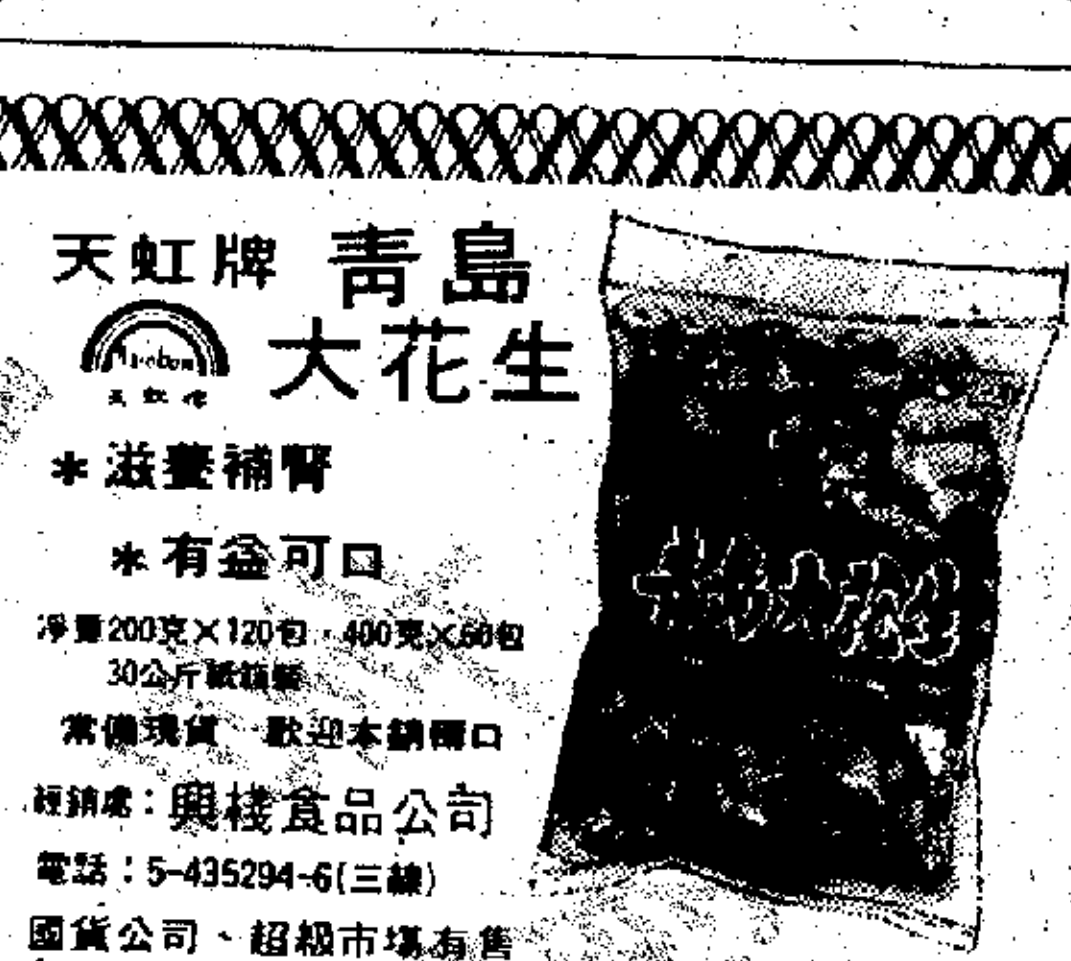 天虹牌 青島
大花生
Rainbow
天虹牌
*滋養補腎
*有益可口
淨重200克×120包，400克×60包
30公斤紙箱裝
常備現貨 歡迎本銷欄口
經銷處：興棧食品公司
電話：5-435294-6(三線)
國貨公司、超級市場有售
青島大花生